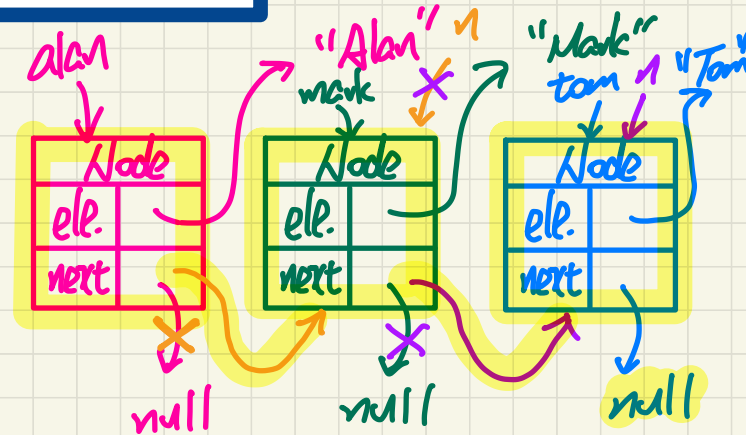 alan
"Alan"
n
"Mark"
mark
tom
n
"Tom"
Node
ele.
next
null
Node
ele.
next
null
Node
ele.
next
null